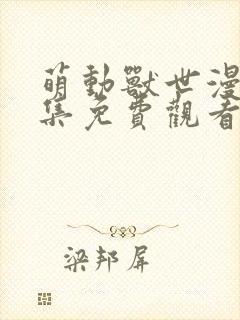 萌動獸世漫
集免費觀看
梁邦屏